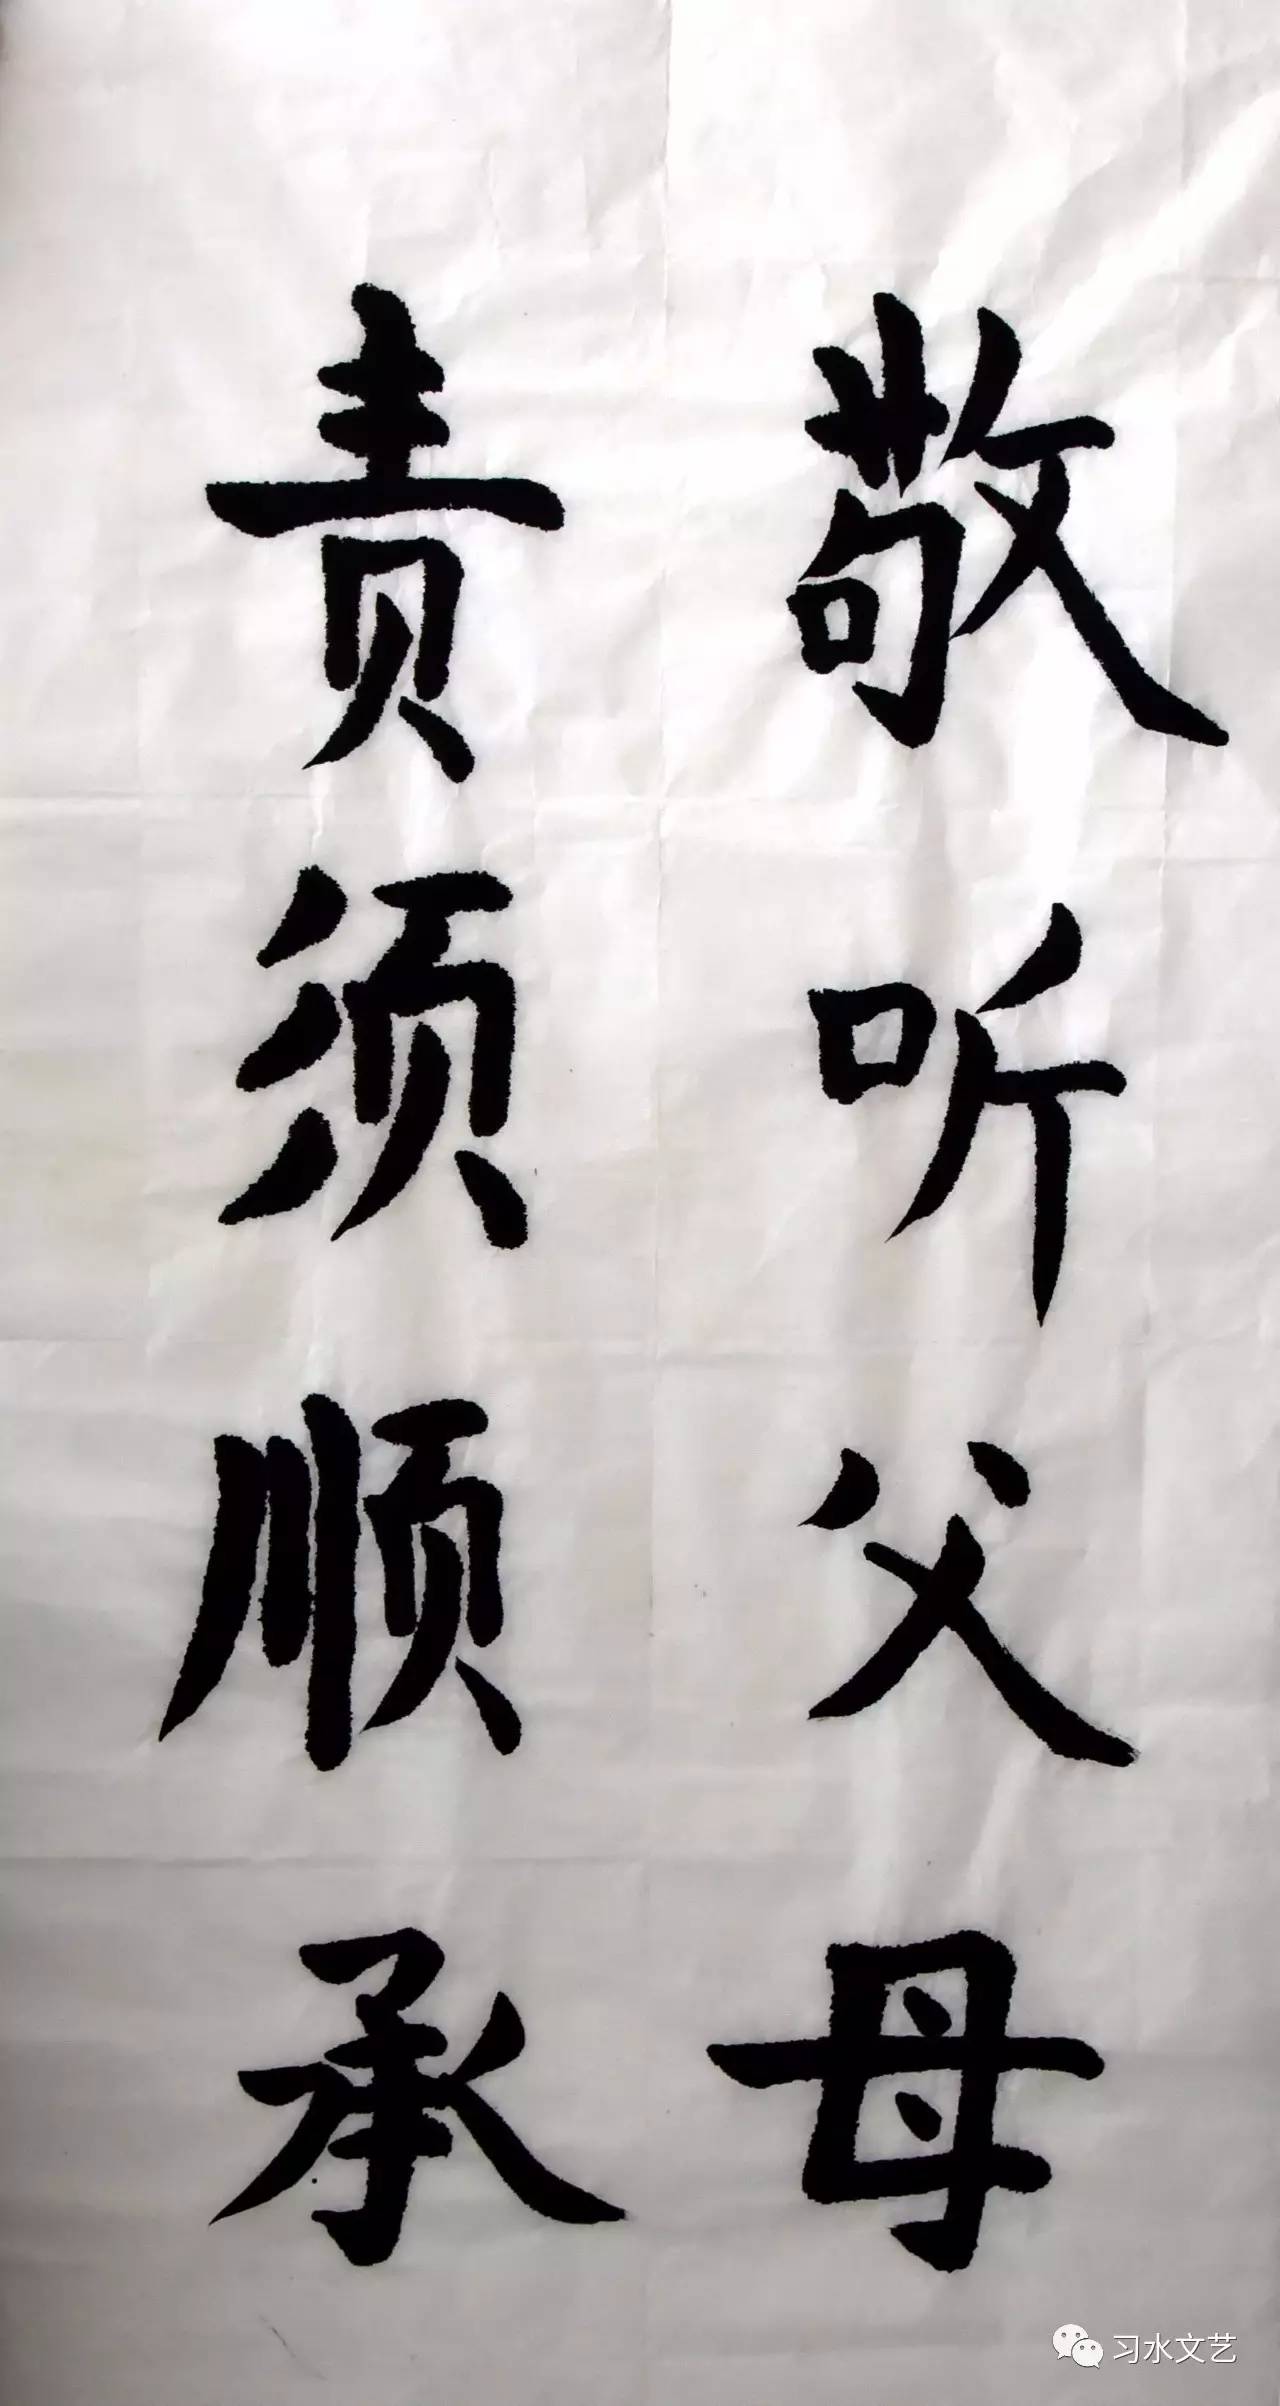 敬听父母
责须顺承
习水文艺